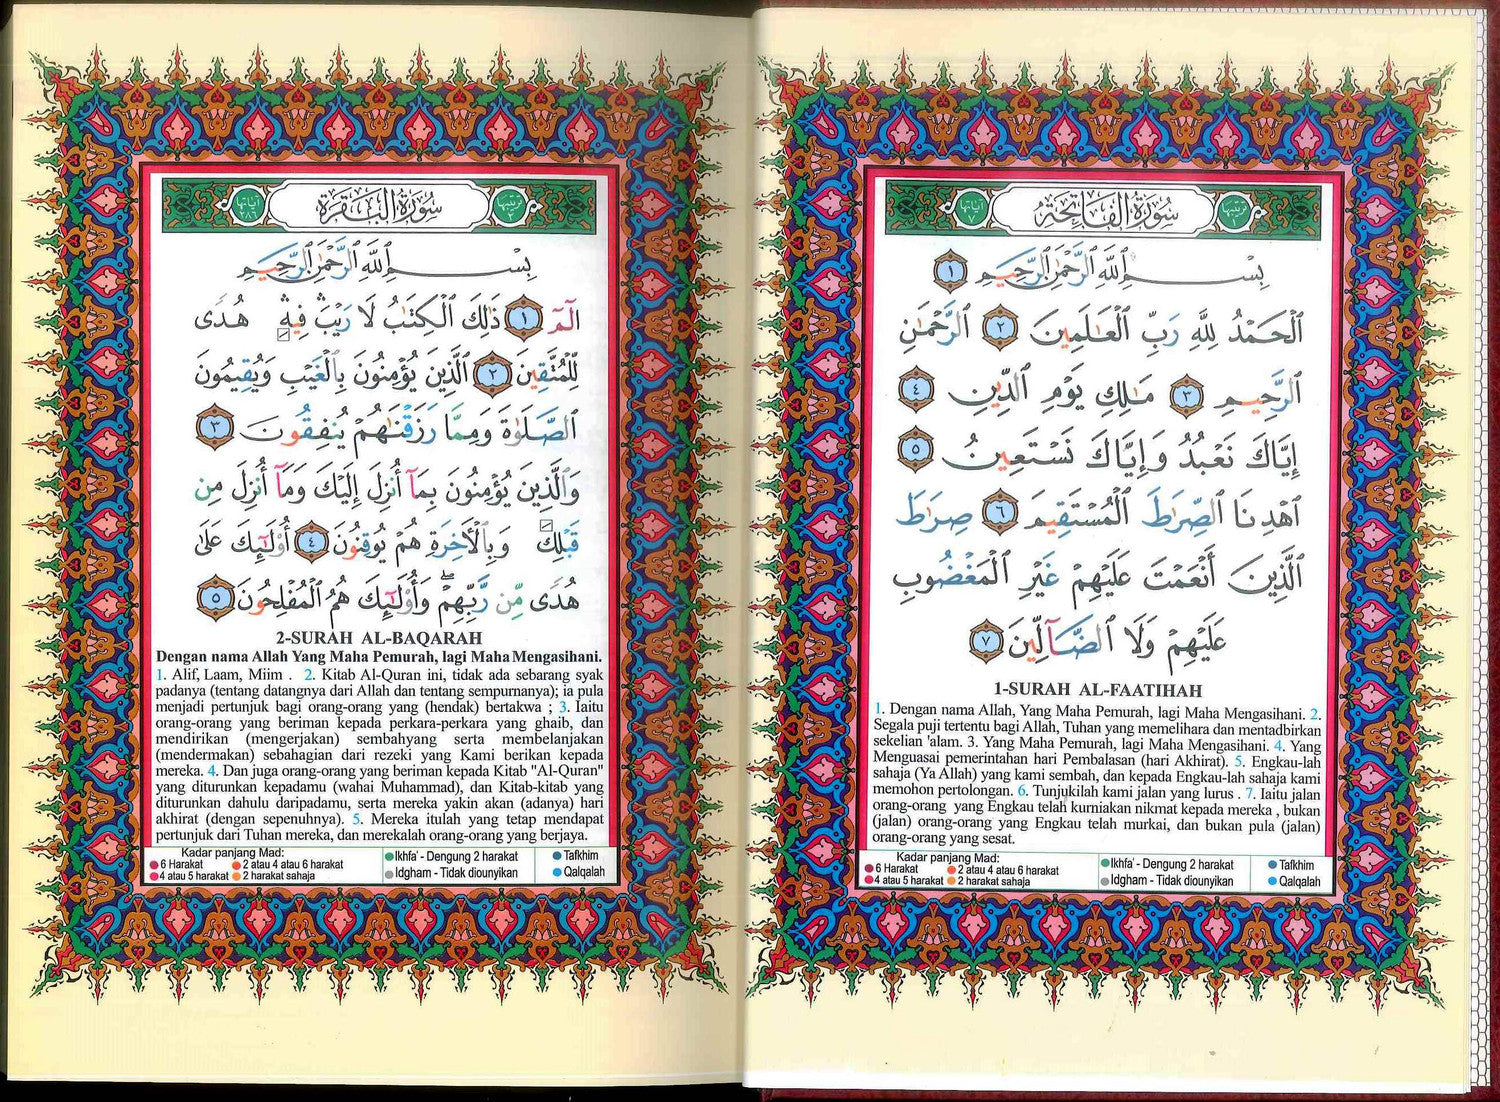 سُورَةُ الْفَاتِحَةِ
ترتيبها ١
آياتها ٧
بِسْمِ ٱللَّهِ ٱلرَّحْمَٰنِ ٱلرَّحِيمِ ١
ٱلْحَمْدُ لِلَّهِ رَبِّ ٱلْعَٰلَمِينَ ٢ ٱلرَّحْمَٰنِ
ٱلرَّحِيمِ ٣ مَٰلِكِ يَوْمِ ٱلدِّينِ ٤
إِيَّاكَ نَعْبُدُ وَإِيَّاكَ نَسْتَعِينُ ٥
ٱهْدِنَا ٱلصِّرَٰطَ ٱلْمُسْتَقِيمَ ٦ صِرَٰطَ
ٱلَّذِينَ أَنْعَمْتَ عَلَيْهِمْ غَيْرِ ٱلْمَغْضُوبِ
عَلَيْهِمْ وَلَا ٱلضَّآلِّينَ ٧
1-SURAH AL-FAATIHAH
1. Dengan nama Allah, Yang Maha Pemurah, lagi Maha Mengasihani. 2.
Segala puji tertentu bagi Allah, Tuhan yang memelihara dan mentadbirkan
sekelian 'alam. 3. Yang Maha Pemurah, lagi Maha Mengasihani. 4. Yang
Menguasai pemerintahan hari Pembalasan (hari Akhirat). 5. Engkau-lah
sahaja (Ya Allah) yang kami sembah, dan kepada Engkau-lah sahaja kami
memohon pertolongan. 6. Tunjukilah kami jalan yang lurus . 7. Iaitu jalan
orang-orang yang Engkau telah kurniakan nikmat kepada mereka , bukan
(jalan) orang-orang yang Engkau telah murkai, dan bukan pula (jalan)
orang-orang yang sesat.
Kadar panjang Mad:
6 Harakat 2 atau 4 atau 6 harakat
4 atau 5 harakat 2 harakat sahaja
Ikhfa' - Dengung 2 harakat
Idgham - Tidak diounyikan
Tafkhim
Qalqalah
سُورَةُ الْبَقَرَةِ
ترتيبها ٢
آياتها ٢٨٦
بِسْمِ ٱللَّهِ ٱلرَّحْمَٰنِ ٱلرَّحِيمِ
الٓمٓ ١ ذَٰلِكَ ٱلْكِتَٰبُ لَا رَيْبَۛ فِيهِۛ هُدًى
لِّلْمُتَّقِينَ ٢ ٱلَّذِينَ يُؤْمِنُونَ بِٱلْغَيْبِ وَيُقِيمُونَ
ٱلصَّلَوٰةَ وَمِمَّا رَزَقْنَٰهُمْ يُنفِقُونَ ٣
وَٱلَّذِينَ يُؤْمِنُونَ بِمَآ أُنزِلَ إِلَيْكَ وَمَآ أُنزِلَ مِن
قَبْلِكَ وَبِٱلْءَاخِرَةِ هُمْ يُوقِنُونَ ٤ أُو۟لَٰٓئِكَ عَلَىٰ
هُدًى مِّن رَّبِّهِمْۖ وَأُو۟لَٰٓئِكَ هُمُ ٱلْمُفْلِحُونَ ٥
2-SURAH AL-BAQARAH
Dengan nama Allah Yang Maha Pemurah, lagi Maha Mengasihani.
1. Alif, Laam, Miim . 2. Kitab Al-Quran ini, tidak ada sebarang syak
padanya (tentang datangnya dari Allah dan tentang sempurnanya); ia pula
menjadi pertunjuk bagi orang-orang yang (hendak) bertakwa ; 3. Iaitu
orang-orang yang beriman kepada perkara-perkara yang ghaib, dan
mendirikan (mengerjakan) sembahyang serta membelanjakan
(mendermakan) sebahagian dari rezeki yang Kami berikan kepada
mereka. 4. Dan juga orang-orang yang beriman kepada Kitab "Al-Quran"
yang diturunkan kepadamu (wahai Muhammad), dan Kitab-kitab yang
diturunkan dahulu daripadamu, serta mereka yakin akan (adanya) hari
akhirat (dengan sepenuhnya). 5. Mereka itulah yang tetap mendapat
pertunjuk dari Tuhan mereka, dan merekalah orang-orang yang berjaya.
Kadar panjang Mad:
6 Harakat 2 atau 4 atau 6 harakat
4 atau 5 harakat 2 harakat sahaja
Ikhfa' - Dengung 2 harakat
Idgham - Tidak diounyikan
Tafkhim
Qalqalah